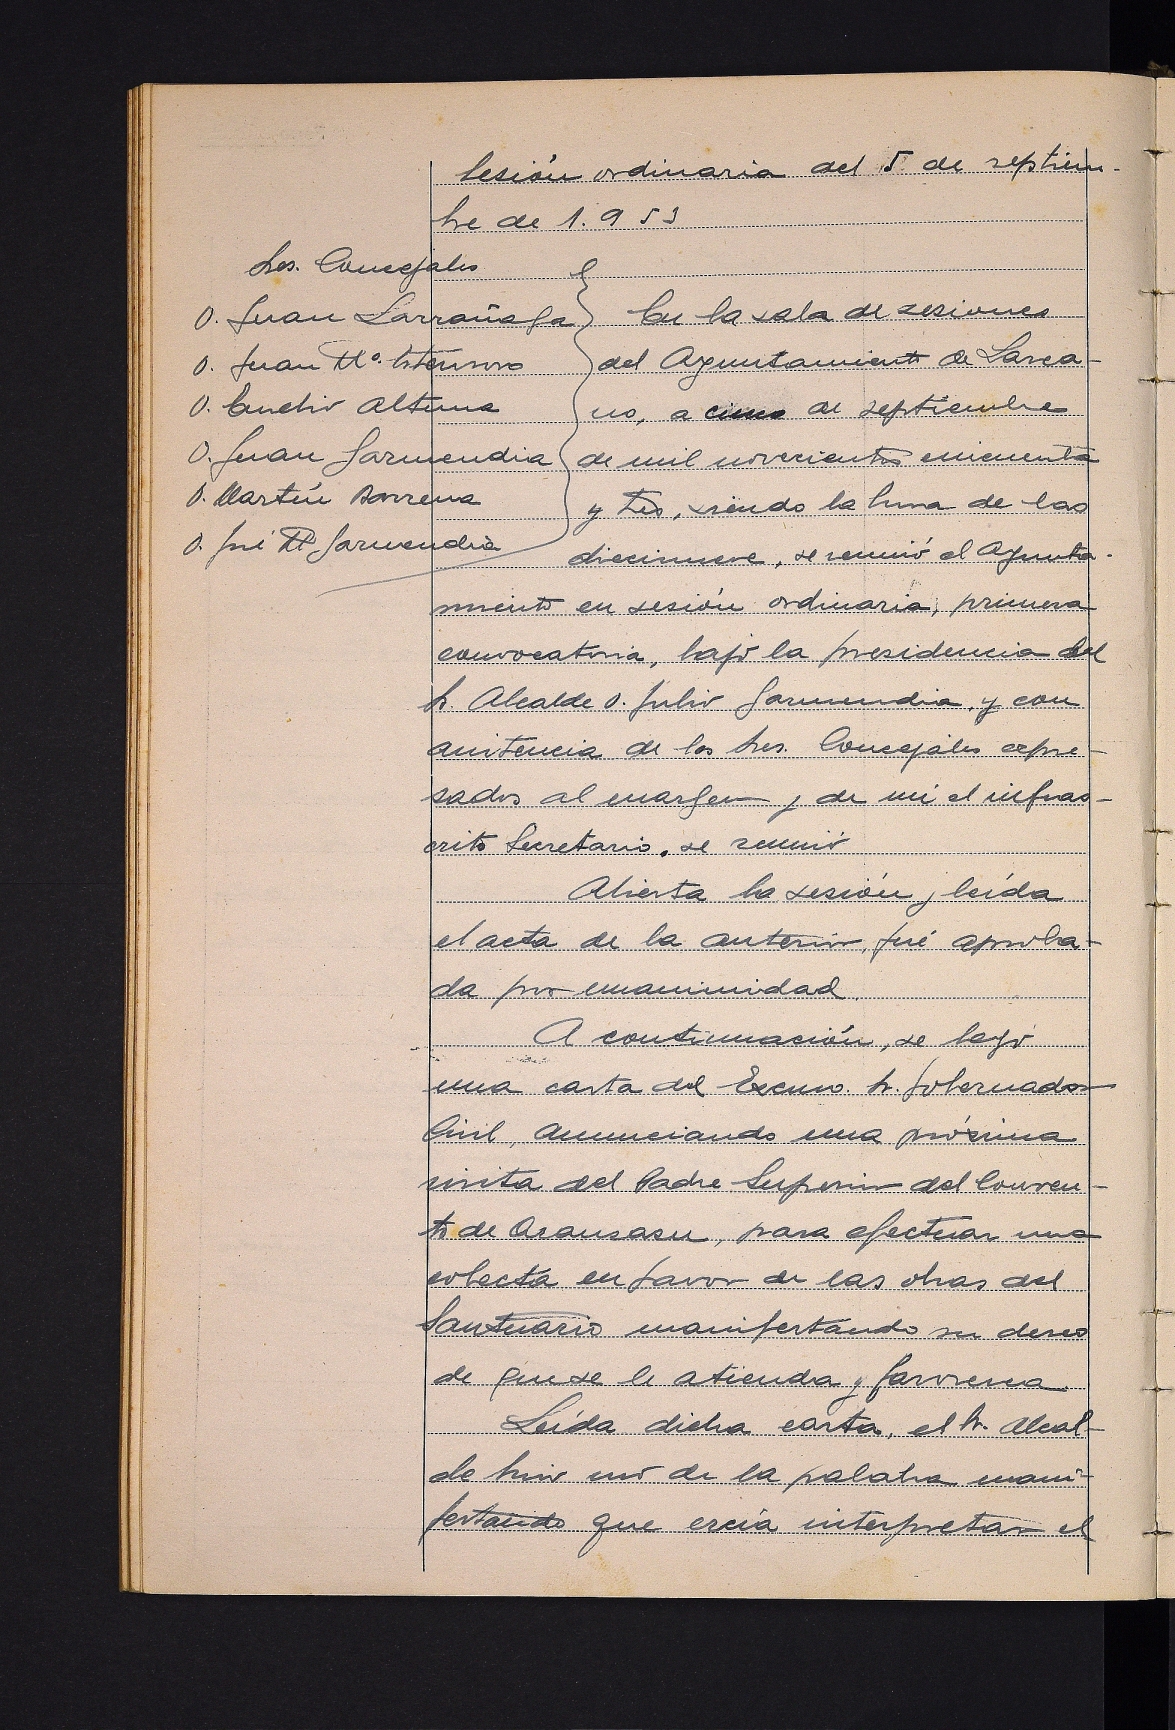 Sesión ordinaria del 5 de septiem-
bre de 1.953
Sres. Concejales
D. Juan Larrañaga
D. Juan Mª
D. Euselio Altuna
D. Juan Garmendia
D. Martín Barrena
D. José Mª Garmendia
En la sala de sesiones
del Ayuntamiento de Lazca-
no, a cinco de septiembre
de mil novecientos cincuenta
y tres, siendo la hora de las
diecinueve, se reunió el Ayunta-
miento en sesión ordinaria, primera
convocatoria, bajo la presidencia del
Sr. Alcalde D. Julio Garmendia, y con
asistencia de los Sres. Concejales expre-
sados al margen y de mi el infras-
crito Secretario, se reunió
Abierta la sesión y leída
el acta de la anterior, fué aproba-
da por unanimidad.
A continuación, se leyó
una carta del Excmo. Sr. Gobernador
Civil, anunciando una próxima
visita del Padre Superior del Conven-
to de Aranzazu, para efectuar una
colecta en favor de las obras del
Santuario manifestando su deseo
de que se le atienda y favorezca.
Leída dicha carta, el Sr. Alcal-
de hizo uso de la palabra mani-
festando que creía interpretar el